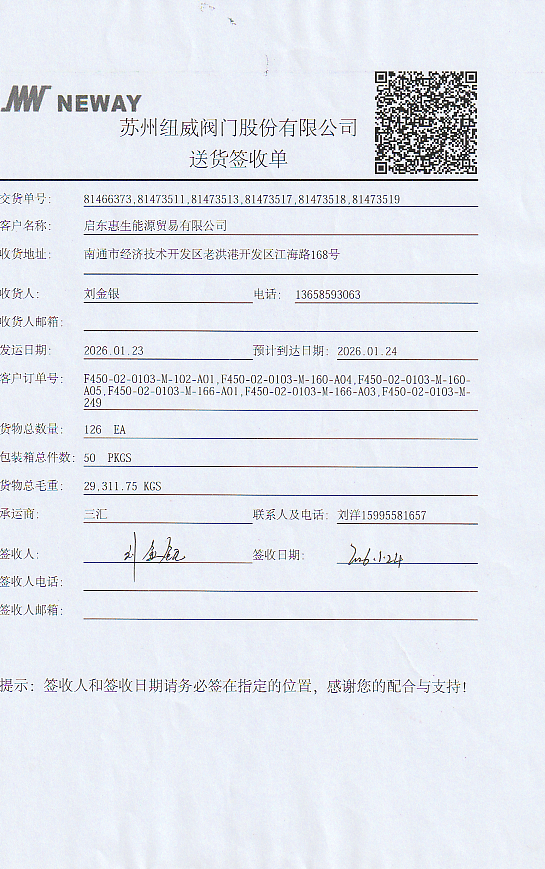 NEWAY
苏州纽威阀门股份有限公司
送货签收单
交货单号: 81466373,81473511,81473513,81473517,81473518,81473519
客户名称: 启东惠生能源贸易有限公司
收货地址: 南通市经济技术开发区老洪港开发区江海路168号
收货人: 刘金银 电话: 13658593063
收货人邮箱:
发运日期: 2026.01.23 预计到达日期: 2026.01.24
客户订单号: F450-02-0103-M-102-A01,F450-02-0103-M-160-A04,F450-02-0103-M-160-
A05,F450-02-0103-M-166-A01,F450-02-0103-M-166-A03,F450-02-0103-M-
249
货物总数量: 126 EA
包装箱总件数: 50 PKGS
货物总毛重: 29,311.75 KGS
承运商: 三汇 联系人及电话: 刘洋15995581657
签收人: 刘金银 签收日期: 2026.1.24
签收人电话:
签收人邮箱:
提示: 签收人和签收日期请务必签在指定的位置, 感谢您的配合与支持!